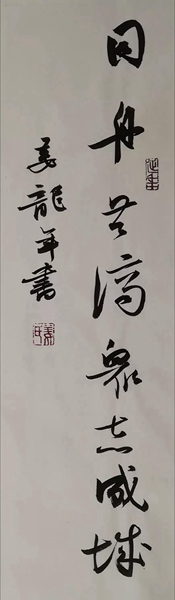 同舟共濟衆志成城
姜龍年書